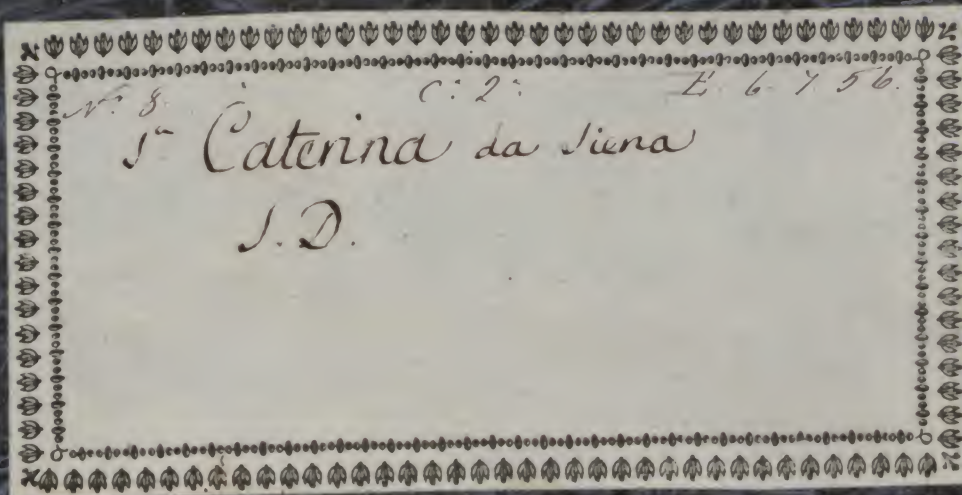 N.º 8. C: 2: E. 6. 7. 56.
S.ª Caterina da Siena
S. D.